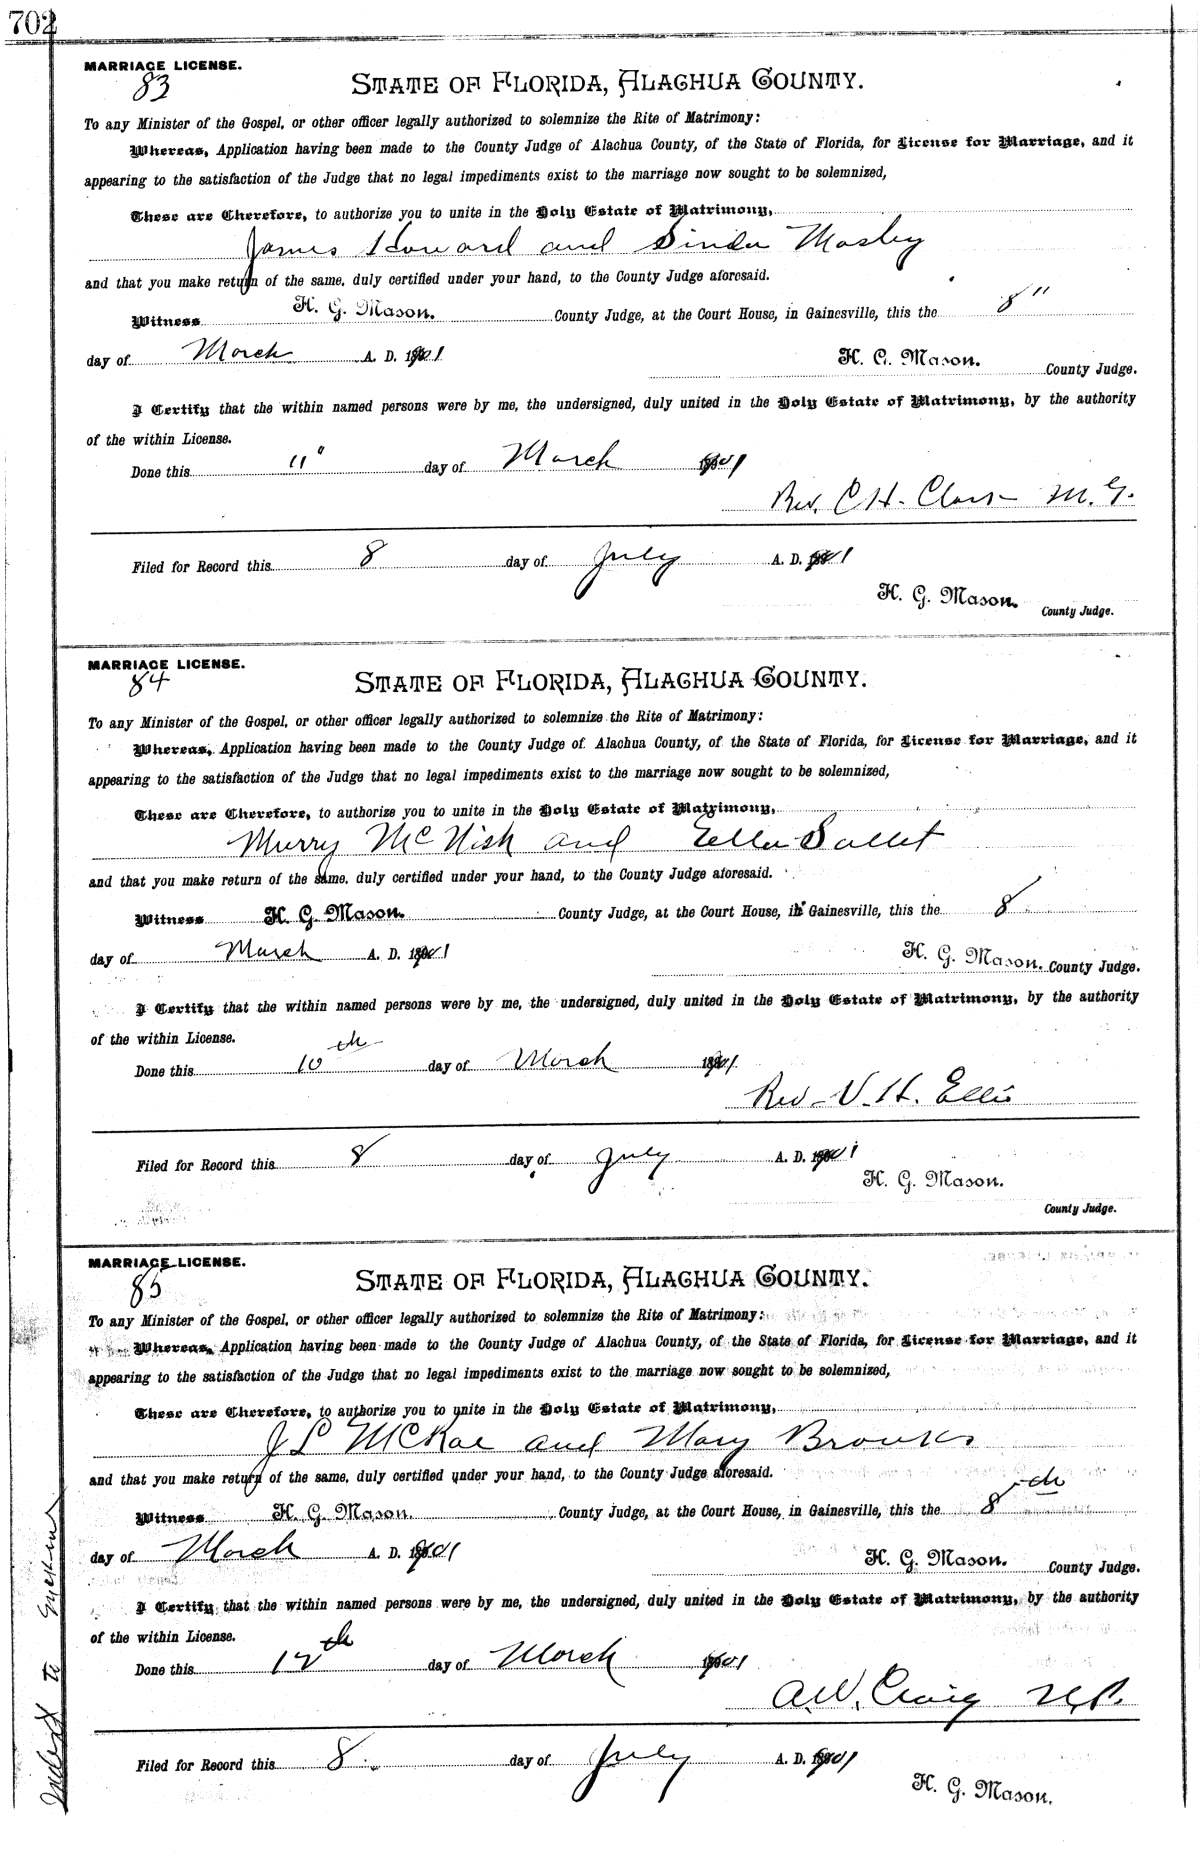 702
MARRIAGE LICENSE.
83
STATE OF FLORIDA, ALACHUA COUNTY.
To any Minister of the Gospel, or other officer legally authorized to solemnize the Rite of Matrimony:
Whereas, Application having been made to the County Judge of Alachua County, of the State of Florida, for License for Marriage, and it
appearing to the satisfaction of the Judge that no legal impediments exist to the marriage now sought to be solemnized,
These are Therefore, to authorize you to unite in the Holy Estate of Matrimony,
James Howard and Sinda Mosley
and that you make return of the same, duly certified under your hand, to the County Judge aforesaid.
Witness H. G. Mason. County Judge, at the Court House, in Gainesville, this the 8"
day of March A. D. 1901 H. G. Mason. County Judge.
I Certify that the within named persons were by me, the undersigned, duly united in the Holy Estate of Matrimony, by the authority
of the within License.
Done this 11" day of March 1901
Rev. C H. M. G.
Filed for Record this 8 day of July A. D. 1901
H. G. Mason.
County Judge.
MARRIAGE LICENSE.
84
STATE OF FLORIDA, ALACHUA COUNTY.
To any Minister of the Gospel, or other officer legally authorized to solemnize the Rite of Matrimony:
Whereas, Application having been made to the County Judge of Alachua County, of the State of Florida, for License for Marriage, and it
appearing to the satisfaction of the Judge that no legal impediments exist to the marriage now sought to be solemnized,
These are Therefore, to authorize you to unite in the Holy Estate of Matrimony,
Murry McNish and Ella Sallet
and that you make return of the same, duly certified under your hand, to the County Judge aforesaid.
Witness H. G. Mason. County Judge, at the Court House, in Gainesville, this the 8
day of March A. D. 1901 H. G. Mason. County Judge.
I Certify that the within named persons were by me, the undersigned, duly united in the Holy Estate of Matrimony, by the authority
of the within License.
Done this 10th day of March 1901
Rev. V. H. Ellis
Filed for Record this 8 day of July A. D. 1901
H. G. Mason.
County Judge.
MARRIAGE LICENSE.
85
STATE OF FLORIDA, ALACHUA COUNTY.
To any Minister of the Gospel, or other officer legally authorized to solemnize the Rite of Matrimony:
Whereas, Application having been made to the County Judge of Alachua County, of the State of Florida, for License for Marriage, and it
appearing to the satisfaction of the Judge that no legal impediments exist to the marriage now sought to be solemnized,
These are Therefore, to authorize you to unite in the Holy Estate of Matrimony,
J L McRae and Mary Brooks
and that you make return of the same, duly certified under your hand, to the County Judge aforesaid.
Witness H. G. Mason. County Judge, at the Court House, in Gainesville, this the 8th
day of March A. D. 1901 H. G. Mason. County Judge.
I Certify that the within named persons were by me, the undersigned, duly united in the Holy Estate of Matrimony, by the authority
of the within License.
Done this 12th day of March 1901
A. W. Craig N. P.
Filed for Record this 8 day of July A. D. 1901
H. G. Mason.